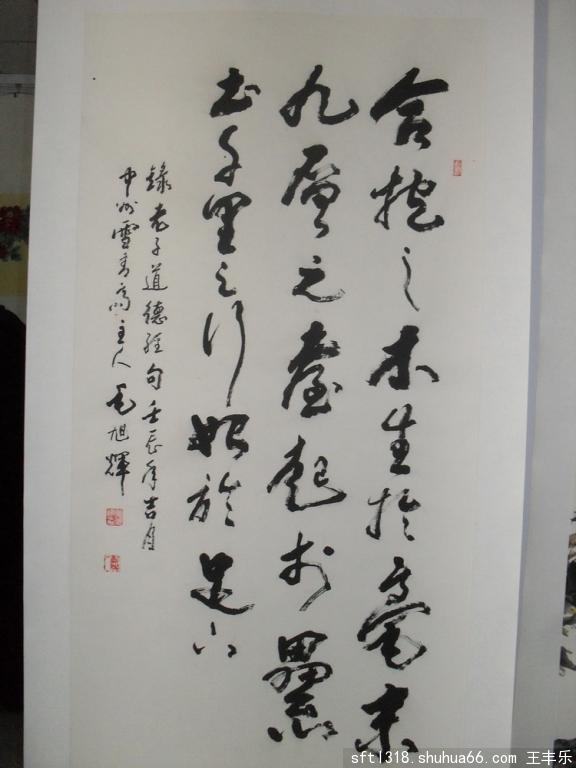 合抱之木生於毫末
九層之臺起於纍
土千里之行始於足下
錄老子道德經句壬辰年吉月
中州雪主人毛旭輝
sft1318.shuhua66.com 王丰乐